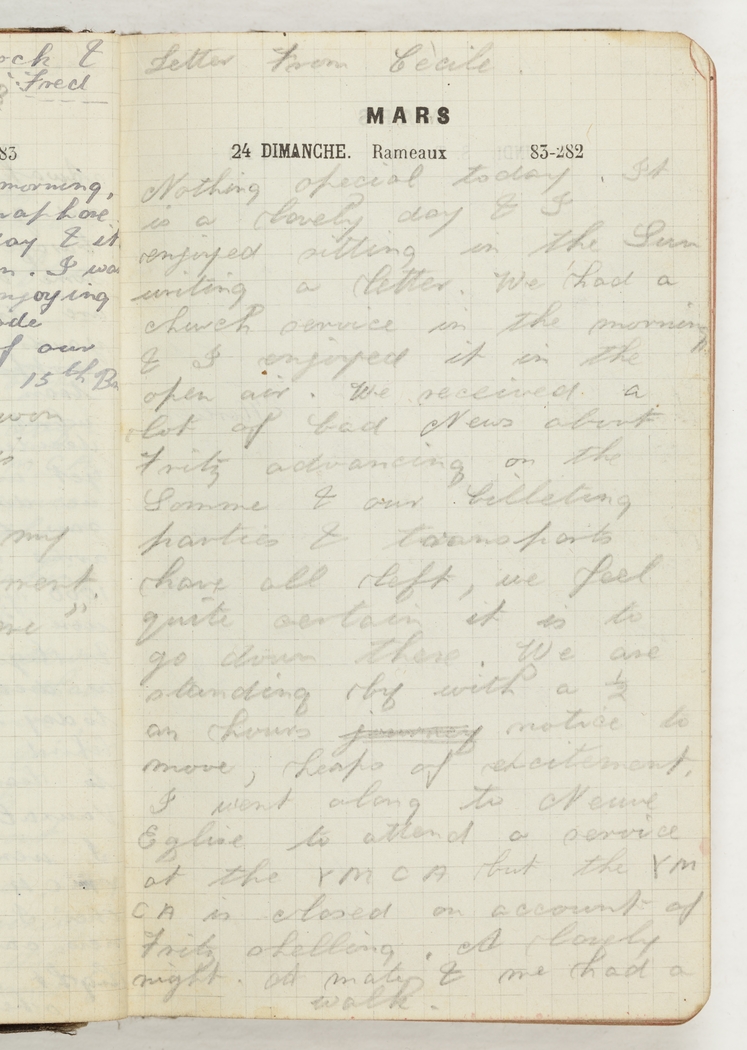 rch &
Fred
83
morning,
ay & it
n. I wa
njoying
ode
f our
15th Ba
won
my
ment
me"
Letter From Cècile.
MARS
24 DIMANCHE. Rameaux 83-282
Nothing special today. It
is a lovely day & I
enjoyed sitting in the Sun
writing a letter. We had a
church service in the morning
& I enjoyed it in the
open air. We received a
lot of bad News about
Fritz advancing on the
Somme & our billeting
parties & transports
have all left, we feel
quite certain it is to
go down there. We are
standing by with a ½
an hours journey notice to
move, heaps of excitement.
I went along to Neuve
Eglise to attend a service
at the YMCA but the YM
CA is closed on account of
Fritz shelling. A lovely
night. A matey & me had a
walk.